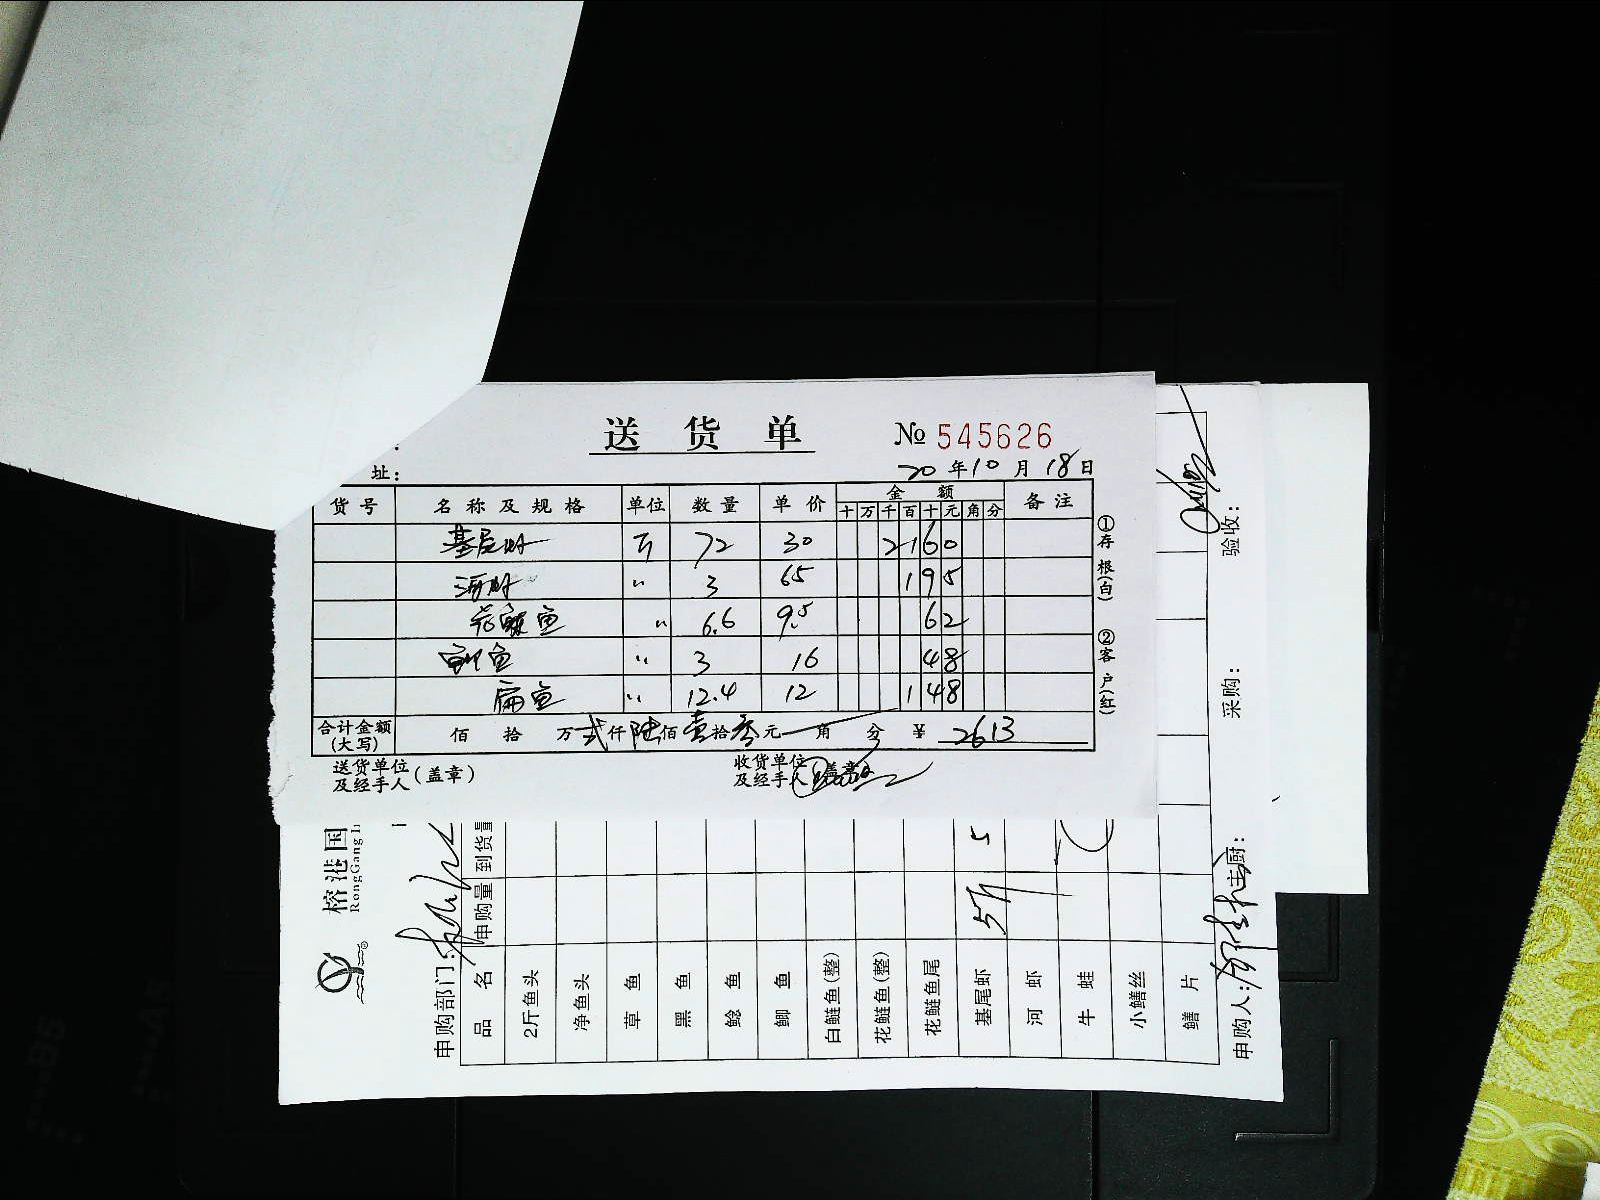 送货单 № 545626
址： 20年10月18日
货号 名称及规格 单位 数量 单价 金额 备注
十 万 千 百 十 元 角 分
基尾虾 斤 72 30 2160
河虾 〃 3 65 195
花鲢鱼 〃 6.6 9.5 62
鲫鱼 〃 3 16 48
扁鱼 〃 12.4 12 148
合计金额(大写) 佰 拾 万 弍仟陆佰壹拾叁元 角 分 ¥ 2613
送货单位及经手人(盖章) 收货单位及经手人(盖章)
①存根(白) ②客户(红)
榕港国
RongGang I
申购部门：
品名 申购量 到货量
2斤鱼头
净鱼头
草鱼
黑鱼
鲶鱼
鲫鱼
白鲢鱼(整)
花鲢鱼(整)
花鲢鱼尾
基尾虾 5斤 5
河虾
牛蛙
小鳝丝
鳝片
申购人： 主厨： 采购： 验收：